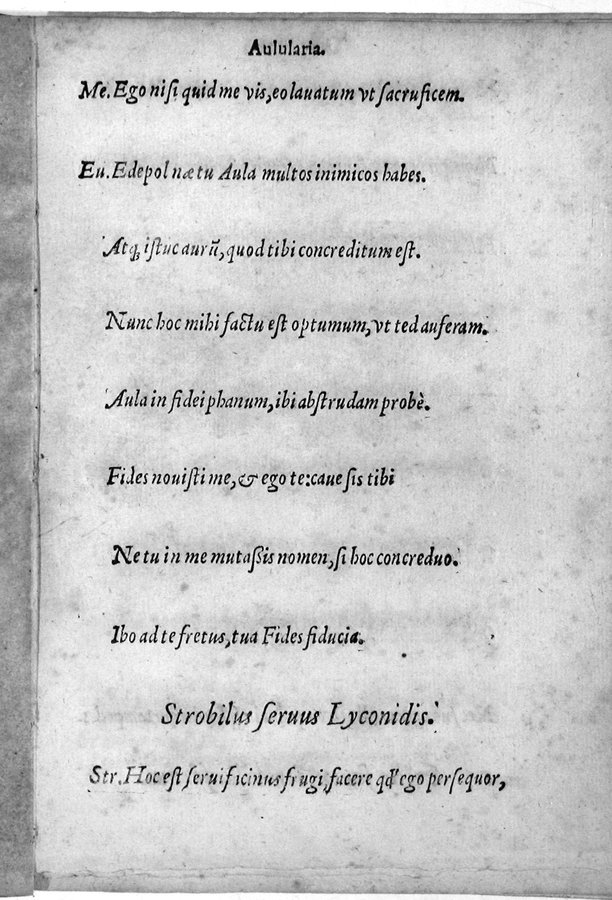 Aulularia.
Me. Ego nisi quid me vis, eo lauatum vt sacruficem.
Eu. Edepol næ tu Aula multos inimicos habes.
Atq; istuc aurũ, quod tibi concreditum est.
Nunc hoc mihi factu est optumum, vt ted auferam.
Aula in fidei phanum, ibi abstrudam probè.
Fides nouisti me, & ego te: caue sis tibi
Ne tu in me mutaßis nomen, si hoc concreduo.
Ibo ad te fretus, tua Fides fiducia.
Strobilus seruus Lyconidis.
Str. Hoc est serui ficinus frugi, facere qd' ego persequor,